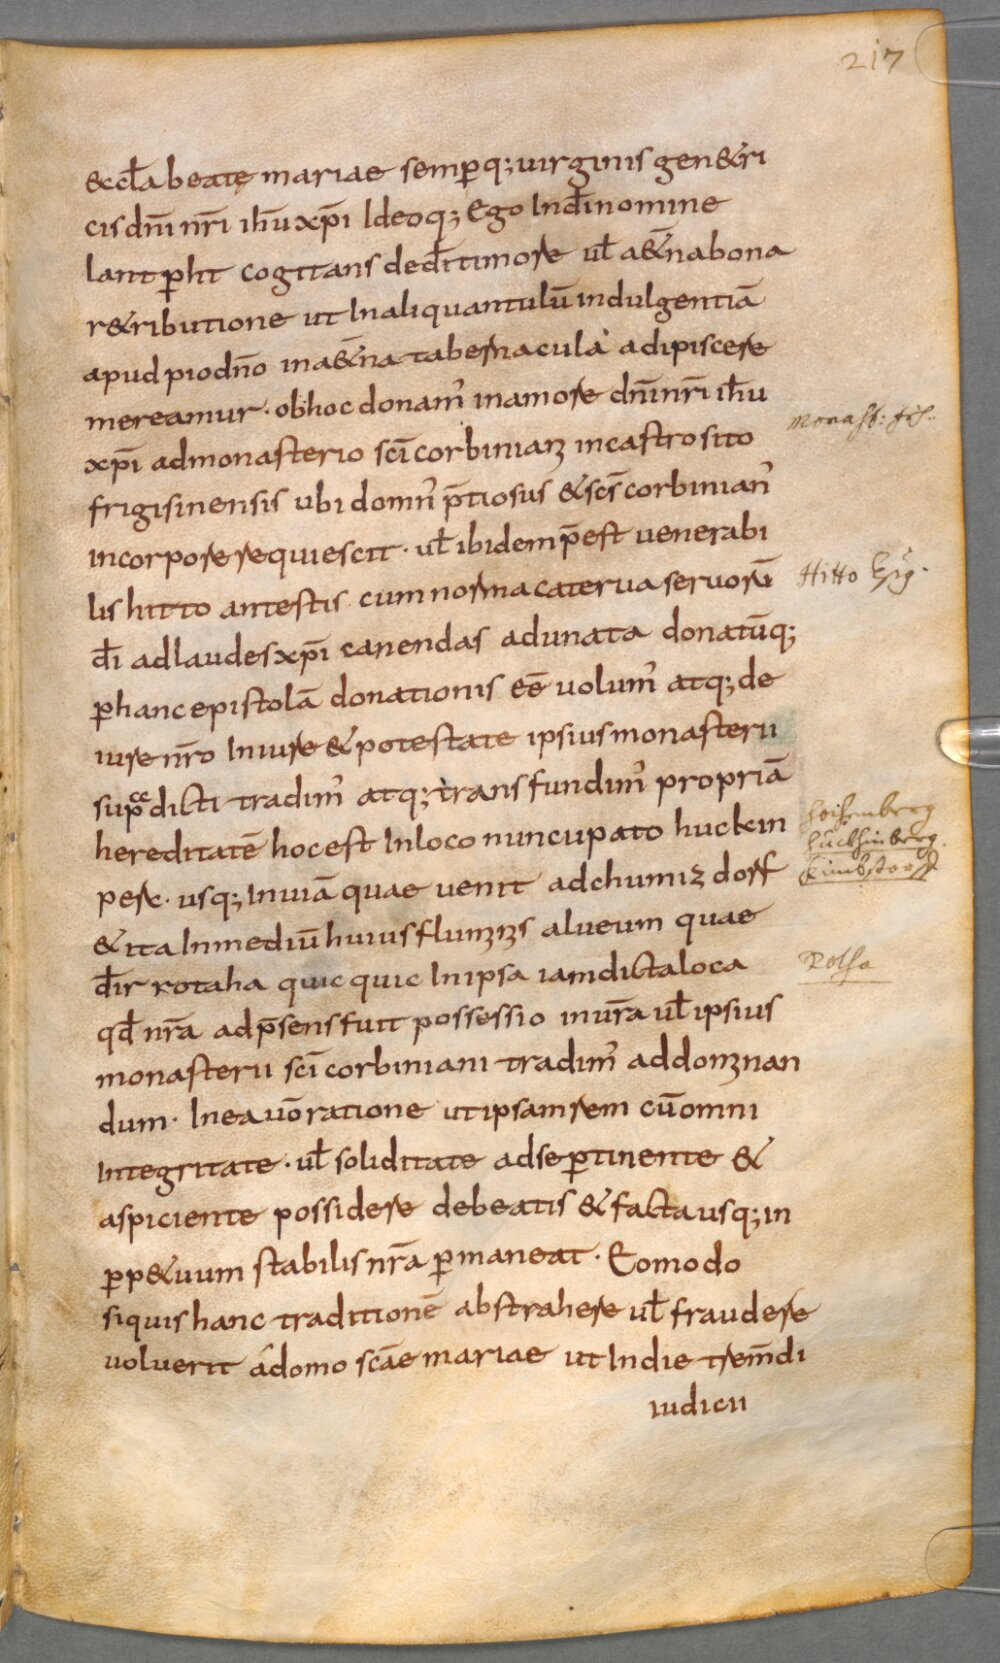 217
& eccl̄a beatę mariae semp̱q; uirginis gen&ri
cis dn̄i nr̄i ih̄u xp̄i Ideoq; Ego In dī nomine
lantp̱ht cogitans de dī timore ul̄ a&̄na bona
r&ributione ut In aliquantulū indulgentiā
apud pio dn̄o in a&̄na tabernacula adipiscere
mereamur · ob hoc donam᾽ in amore dn̄i nr̄i ih̄u
xp̄i ad monasterio sc̄i corbiniani in castro sito
frigisinensis ubi domn᾽ p̄tiosus & sc̄s corbinian᾽
in corpore requiescit · ul̄ ibidem p̄est uenerabi
lis hitto antestis cum norma caterua seruorū
dī ad laudes xp̄i canendas adunata donatūq;
p̱ hanc epistolā donationis eē uolum᾽ atq; de
iure nr̄o In iure & potestate ipsius monasterii
sup̱dicti tradim᾽ atq; transfundim᾽ propriā
hereditatē hoc est In loco nuncupato huckin
perc · usq; In uiā quae uenit ad chumizdorf
& ita In mediū huius fluminis alueum quae
dīr rotaha quicquic In ipsa iamdicta loca
qd̄ nr̄a ad p̄sens fuit possessio in ur̄a ul̄ ipsius
monasterii sc̄i corbiniani tradim᾽ ad dominan
dum · In ea uō ratione ut ipsam rem cū omni
Integritate · ul̄ soliditate ad se p̱tinente &
aspiciente possidere debeatis & facta usq; in
p̱p&uum stabilis nr̄a p̱maneat · Eo modo
si quis hanc traditionē abstrahere ul̄ fraudere
uoluerit a domo sc̄ae mariae ut In die trem̄di
iudicii
Monast: fris:
Hitto Ep̄g.
Huckhinberg.
Kimbstorff
Rotha